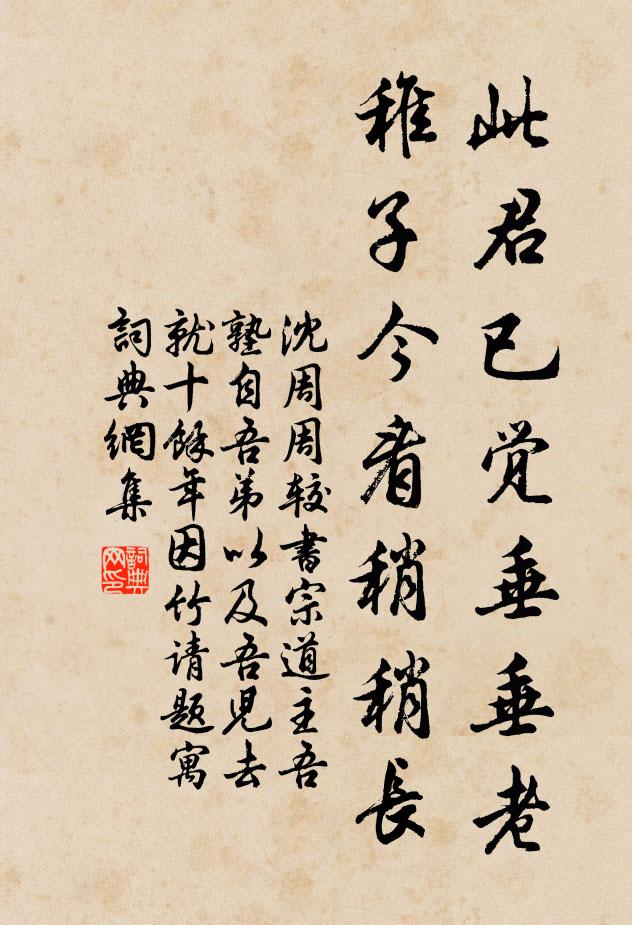 此君已觉垂垂老
稚子今看稍稍长
沈周周较書宗道主吾
塾自吾弟以及吾児去
就十餘年因竹请题寓
詞典網集
詞典網印